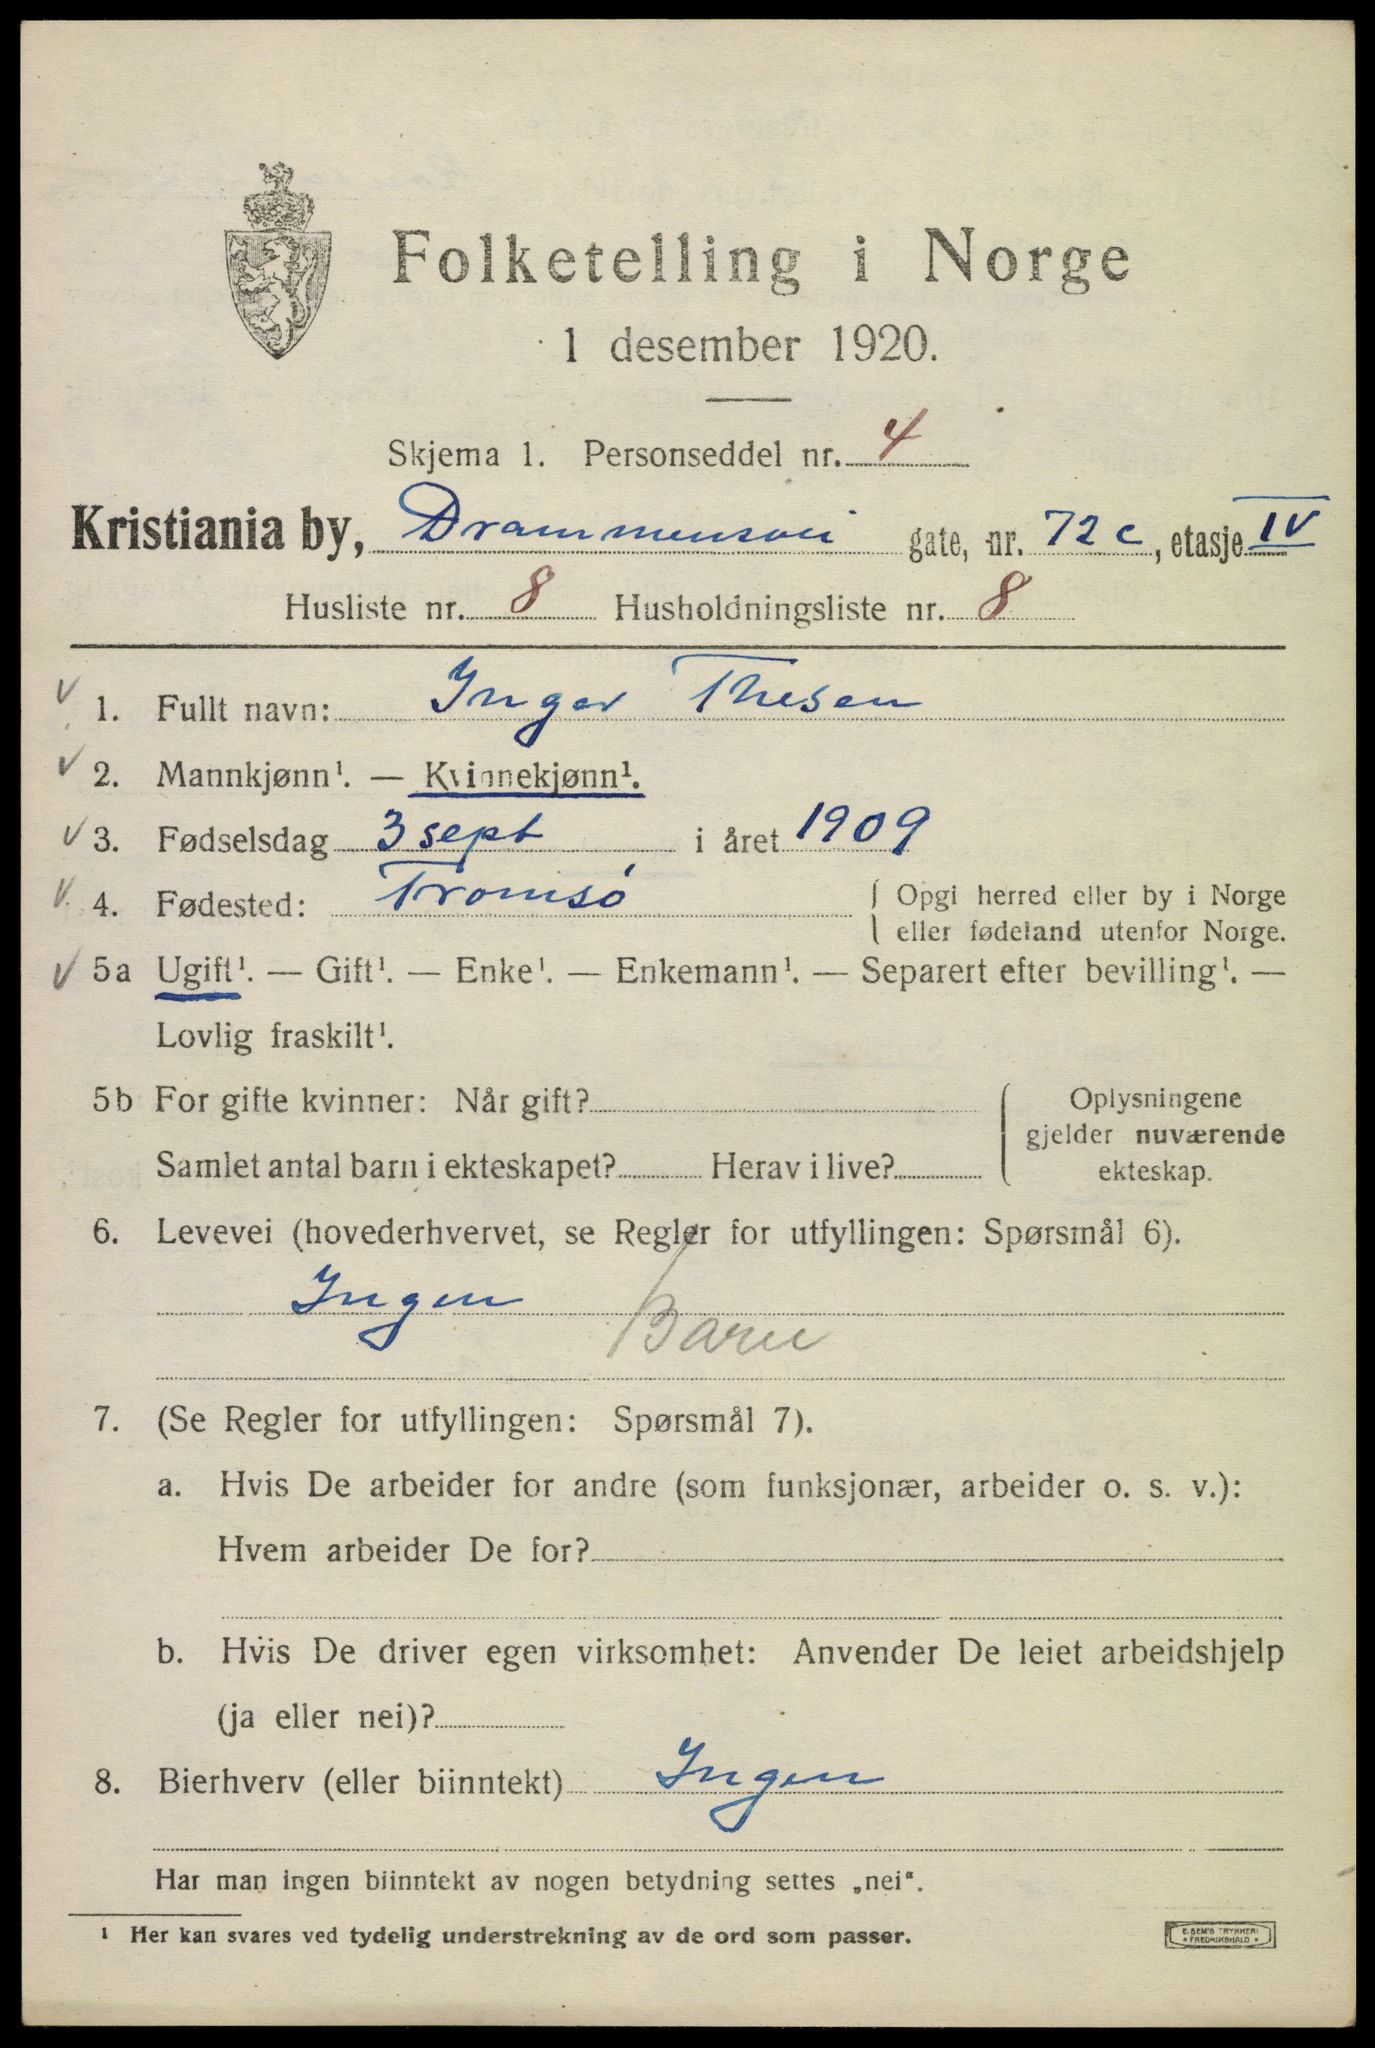 Folketelling i Norge
1 desember 1920.
Skjema 1. Personseddel nr. 4
Kristiania by, Drammensvei gate, nr. 72 c, etasje IV
Husliste nr. 8 Husholdningsliste nr. 8
1. Fullt navn: Inger Thesen
2. Mannkjønn¹. — Kvinnekjønn¹.
3. Fødselsdag 3 sept i året 1909
4. Fødested: Tromsø { Opgi herred eller by i Norge
eller fødeland utenfor Norge.
5a Ugift¹. — Gift¹. — Enke¹. — Enkemann¹. — Separert efter bevilling¹. —
Lovlig fraskilt¹.
5b For gifte kvinner: Når gift?
Samlet antal barn i ekteskapet? Herav i live?
Oplysningene
gjelder nuværende
ekteskap.
6. Levevei (hovederhvervet, se Regler for utfyllingen: Spørsmål 6).
Ingen Barn
7. (Se Regler for utfyllingen: Spørsmål 7).
a. Hvis De arbeider for andre (som funksjonær, arbeider o. s. v.):
Hvem arbeider De for?
b. Hvis De driver egen virksomhet: Anvender De leiet arbeidshjelp
(ja eller nei)?
8. Bierhverv (eller biinntekt) Ingen
Har man ingen biinntekt av nogen betydning settes „nei“.
¹ Her kan svares ved tydelig understrekning av de ord som passer.
E. SEM'S TRYKKERI
* FREDRIKSHALD *